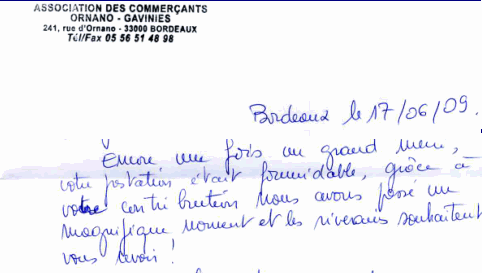 ASSOCIATION DES COMMERÇANTS
ORNANO - GAVINIES
241, rue d'Ornano - 33000 BORDEAUX
Tél/Fax 05 56 51 48 98
Bordeaux le 17/06/09.
Encore une fois un grand merci,
votre prestation était formidable, grâce à
votre contribution nous avons passé un
magnifique moment et les riverains souhaitent
vous revoir !